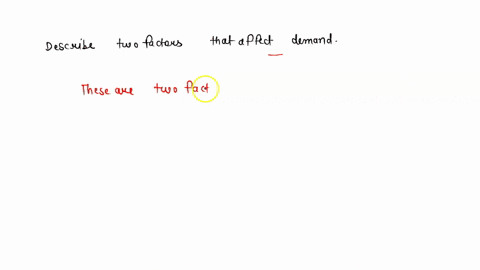 Describe two factors that affect demand.
These are two fact